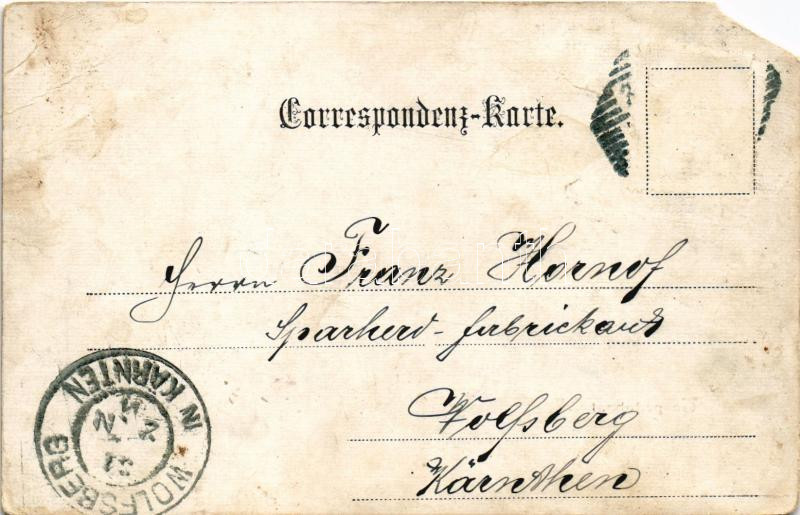 Correspondenz-Karte.
Herrn Franz Hornof
Sparherd-fabrickant
Wolfsberg
Kärnthen
WOLFSBERG IN KÄRNTEN